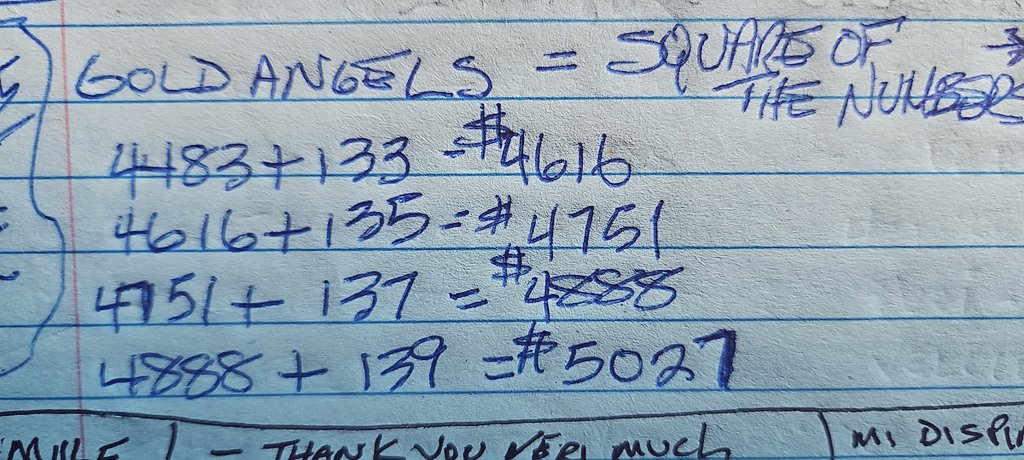 GOLD ANGELS = SQUARE OF →
THE NUMBERS
4483 + 133 = #4616
4616 + 135 = #4751
4751 + 137 = #4888
4888 + 139 = #5027
- THANK YOU VERI MUCH
MI